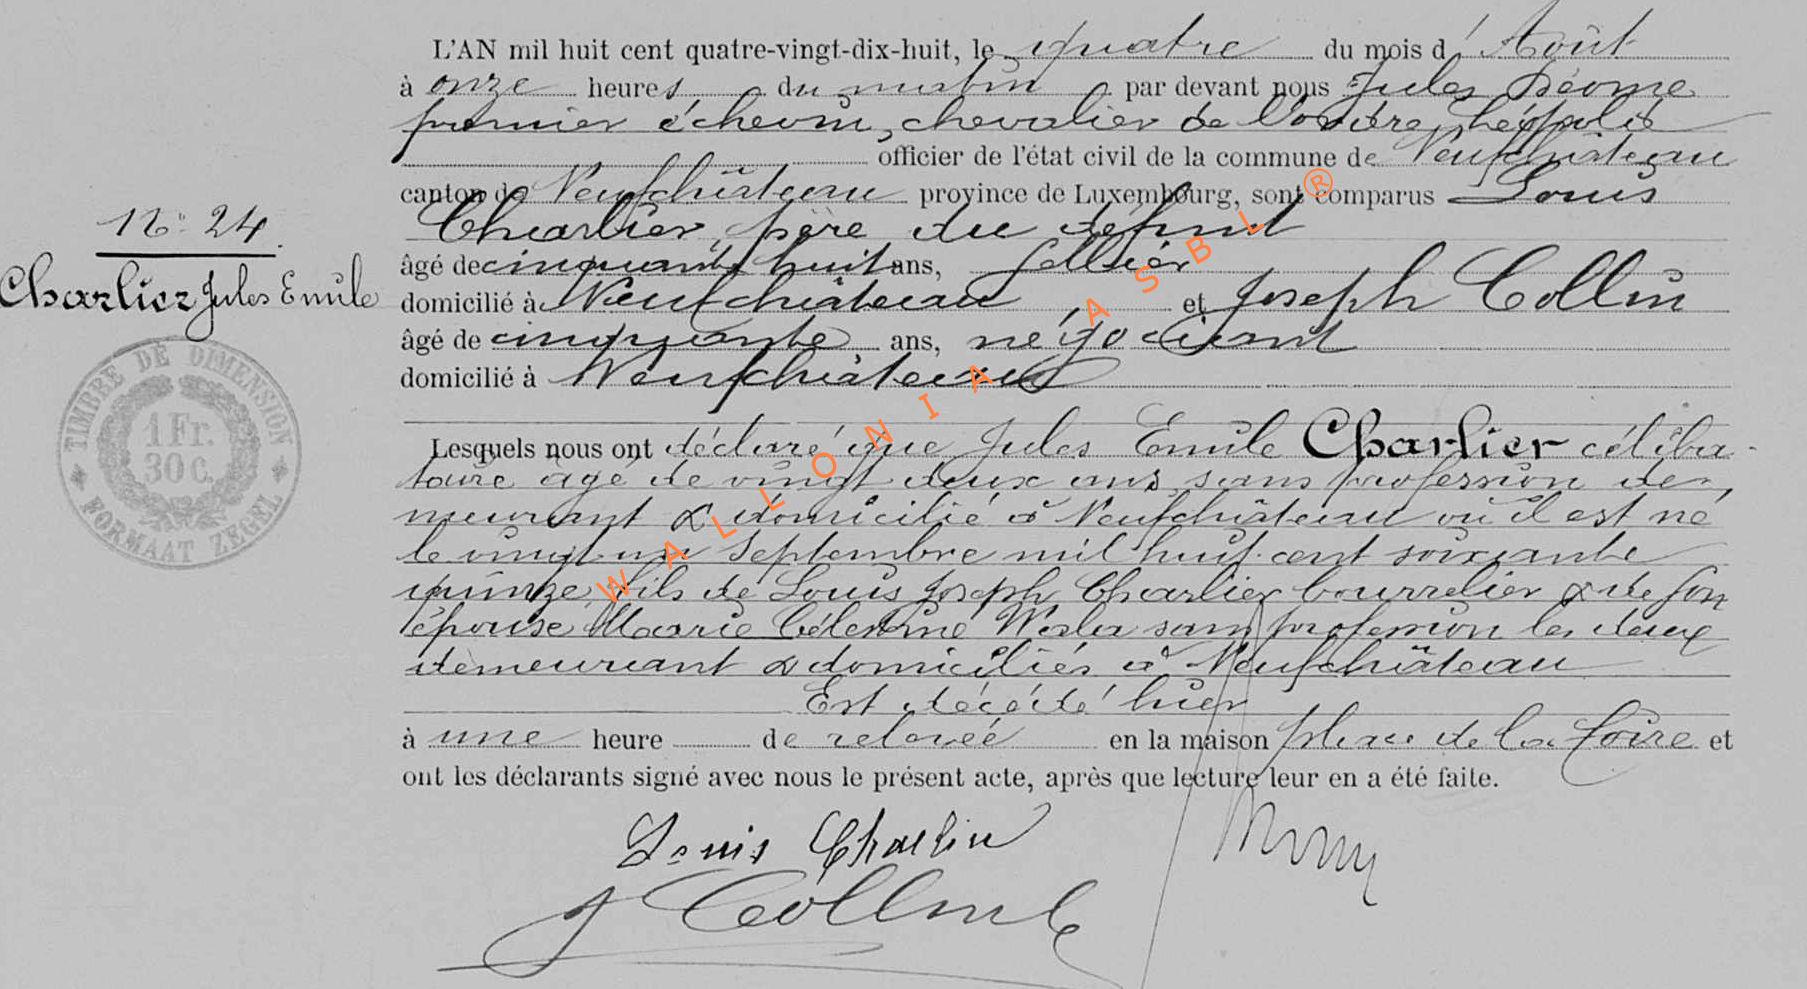 L'AN mil huit cent quatre-vingt-dix-huit, le quatre du mois d'Août
à onze heures du matin par devant nous Jules
premier échevin, chevalier de l'ordre Léopold
officier de l'état civil de la commune de Neufchâteau
canton de Neufchâteau province de Luxembourg, sont comparus Louis
Charlier, père du défunt
âgé de cinquante huit ans, sellier
domicilié à Neufchâteau et Joseph Collin
âgé de cinquante ans, négociant
domicilié à Neufchâteau
N° 24
Charlier Jules Emile
TIMBRE DE DIMENSION
1 Fr.
30 C.
FORMAAT ZEGEL
Lesquels nous ont déclaré que Jules Emile Charlier céliba-
taire âgé de vingt deux ans sans profession de-
meurant & domicilié à Neufchâteau où il est né
le vingt un septembre mil huit cent soixante
quinze fils de Louis Joseph Charlier bourrelier & de son
épouse Marie Célestine sans profession les deux
demeurant & domiciliés à Neufchâteau
Est décédé hier
à une heure de relevée en la maison place de la foire et
ont les déclarants signé avec nous le présent acte, après que lecture leur en a été faite.
Louis Charlier
J Collin
WALLONIA ASBL ®